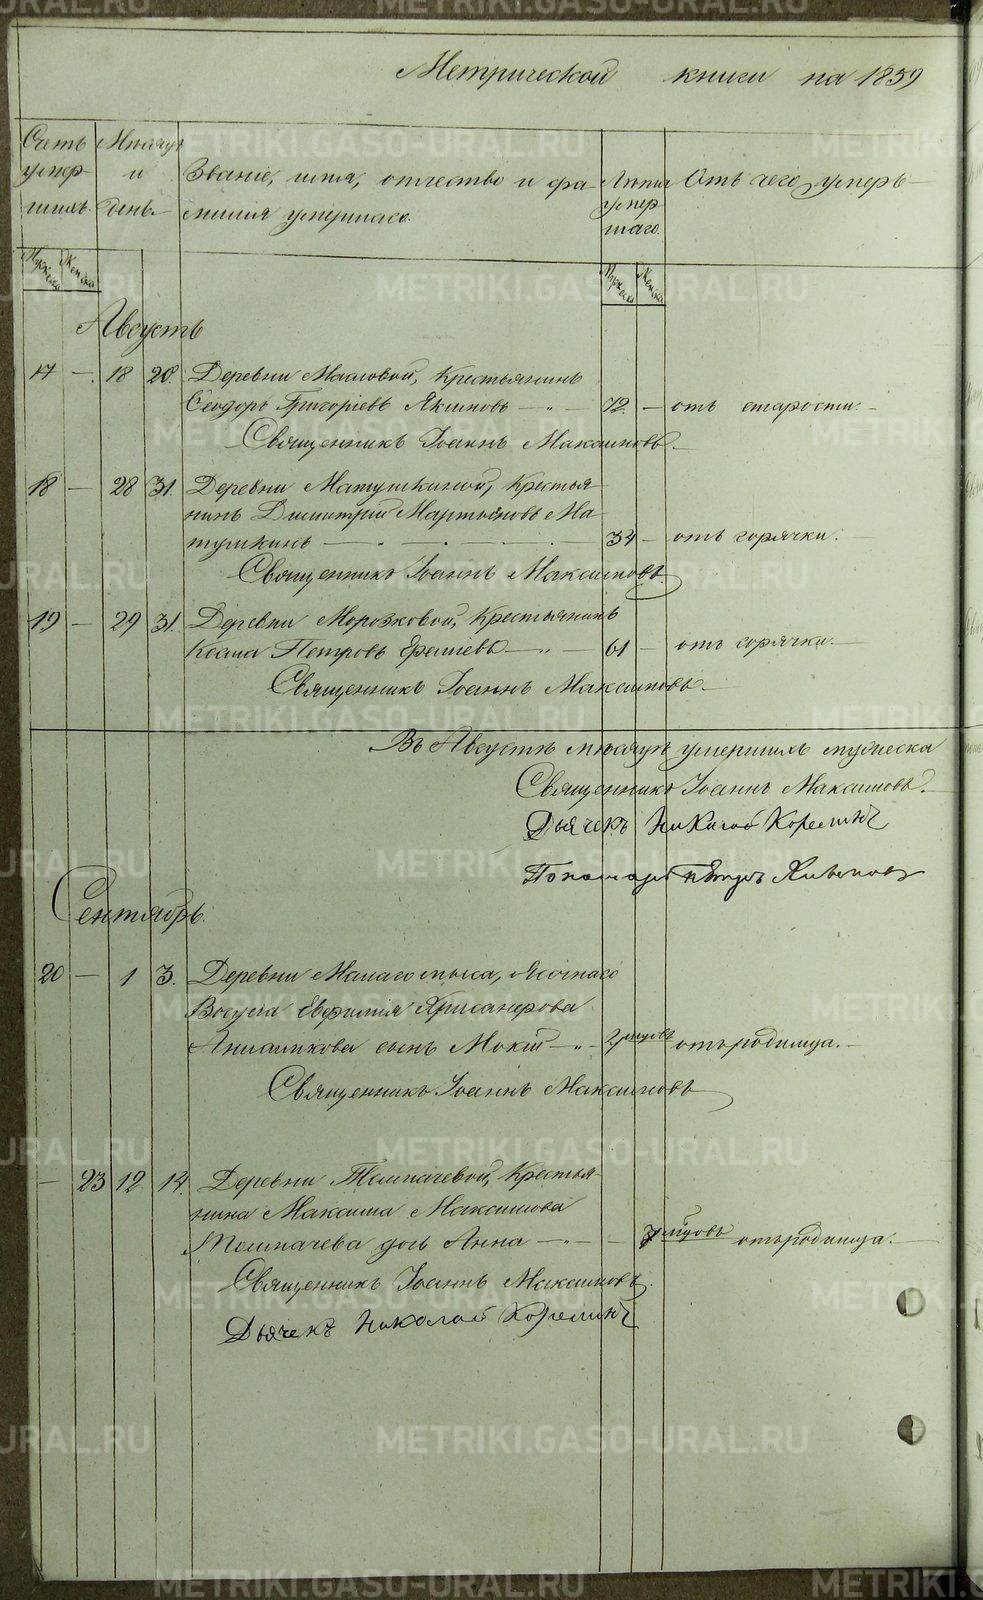 Метрической книги на 1859
Счетъ умер- шихъ.
Мѣсяцъ и день.
Званіе, имя, отчество и фа-
милія умершаго.
Лѣта умер- шаго.
Отъ чего умеръ
Мужеска Женска
Мужеска Женска
Августъ
17 — 18 20. Деревни Масловой, Крестьянинъ
Ѳеодоръ Григоріевъ Якимовъ — 72 — отъ старости. —
Священникъ Іоаннъ Максимовъ. —
18 — 28 31. Деревни Матушкиной, Крестья-
нинъ Димитрій Мартьяновъ Ма-
тушкинъ — 34 — отъ горячки.
Священникъ Іоаннъ Максимовъ
19 — 29 31. Деревни Морозковой, Крестьянинъ
Косма Петровъ — 61 — отъ горячки. —
Священникъ Іоаннъ Максимовъ. —
Въ Августѣ мѣсяцѣ умершихъ мужеска
Священникъ Іоаннъ Максимовъ. —
Дьячекъ Николай
Пономарь Петръ
Сентябрь.
20 — 1 3. Деревни Малаго мыса, Ясачнаго
Вогула Евфимія
сынъ Мокій — отъ родимца. —
Священникъ Іоаннъ Максимовъ
— 23 12 14. Деревни Толмачевой, Крестья-
нина Максима Максимова
Толмачева дочь Анна — отъ родимца. —
Священникъ Іоаннъ Максимовъ.
Дьячекъ Николай
METRIKI.GASO-URAL.RU